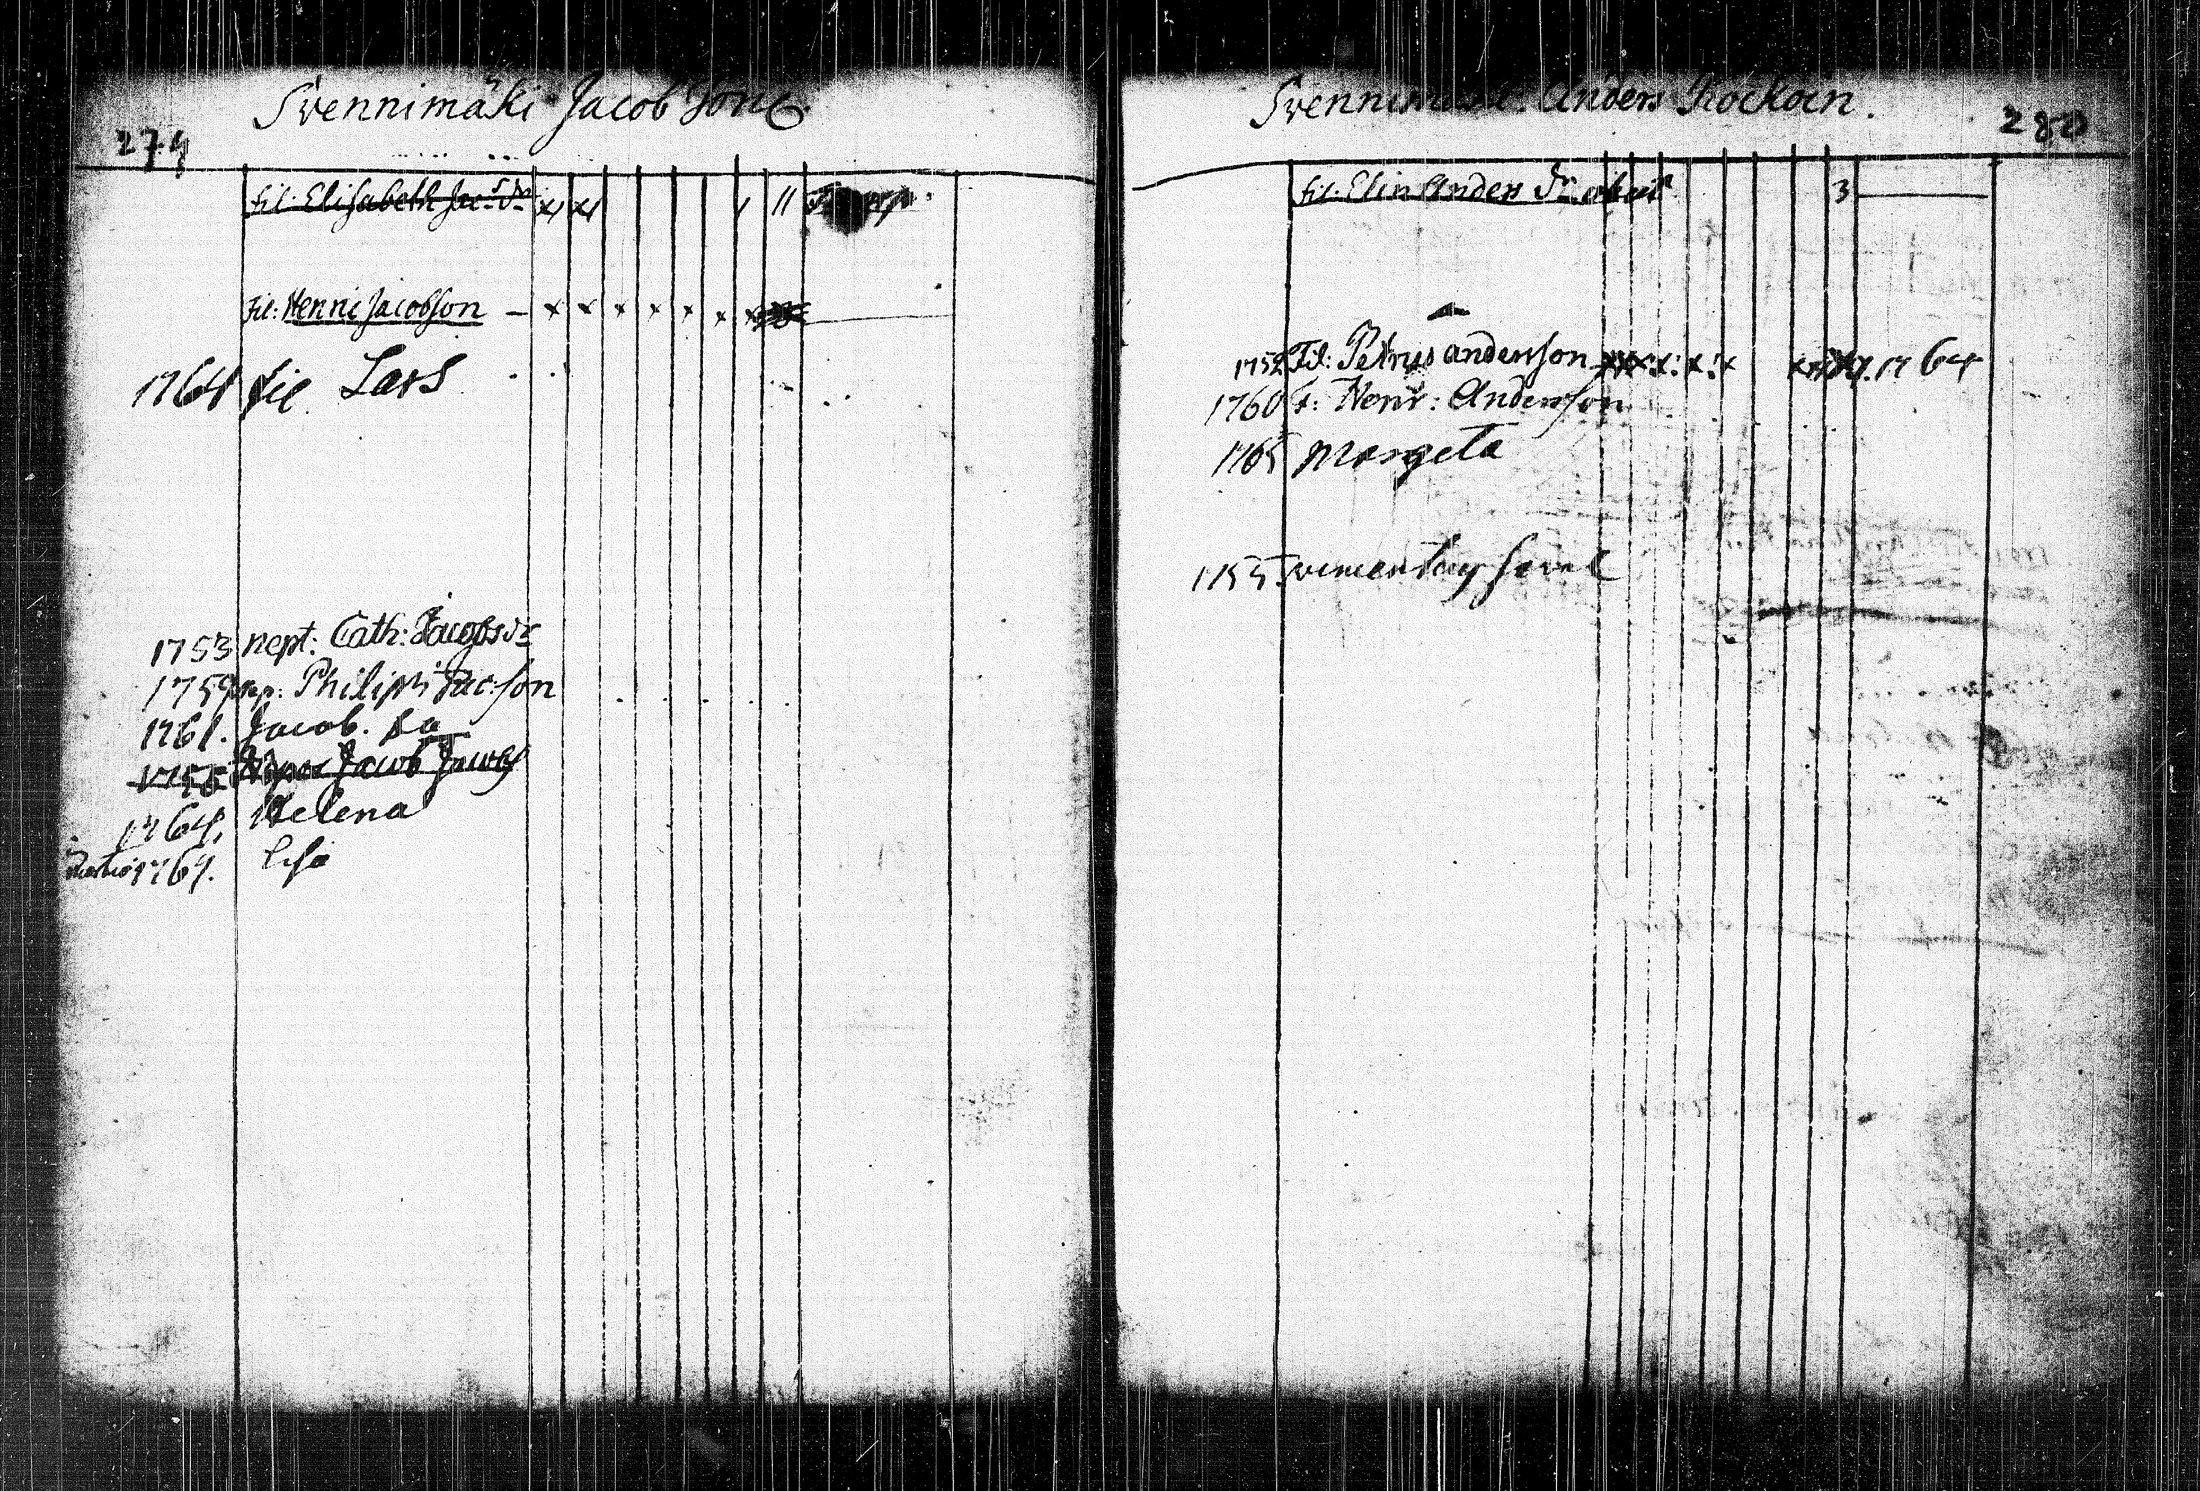 Svennimäki Jacob
279
fil: Elisabeth Jac: Dr x x 1 11
fil: Henric Jacobson — x x x x x x x
1764 fil Lars
1753 nept: Cath: Jacobs Dr
1759 nep: Philip Jac:son
1761. Jacob.
1755 Jacob Jacobs
1764. Helena
Martio 1767. Lisa
Anders Kockoin.
280
fil: Elin Anders Dr obiit 3
1752 Fil: Petrus anderson x x x x x x 1764
1760 F: Henr: Anderson
1765 Margeta